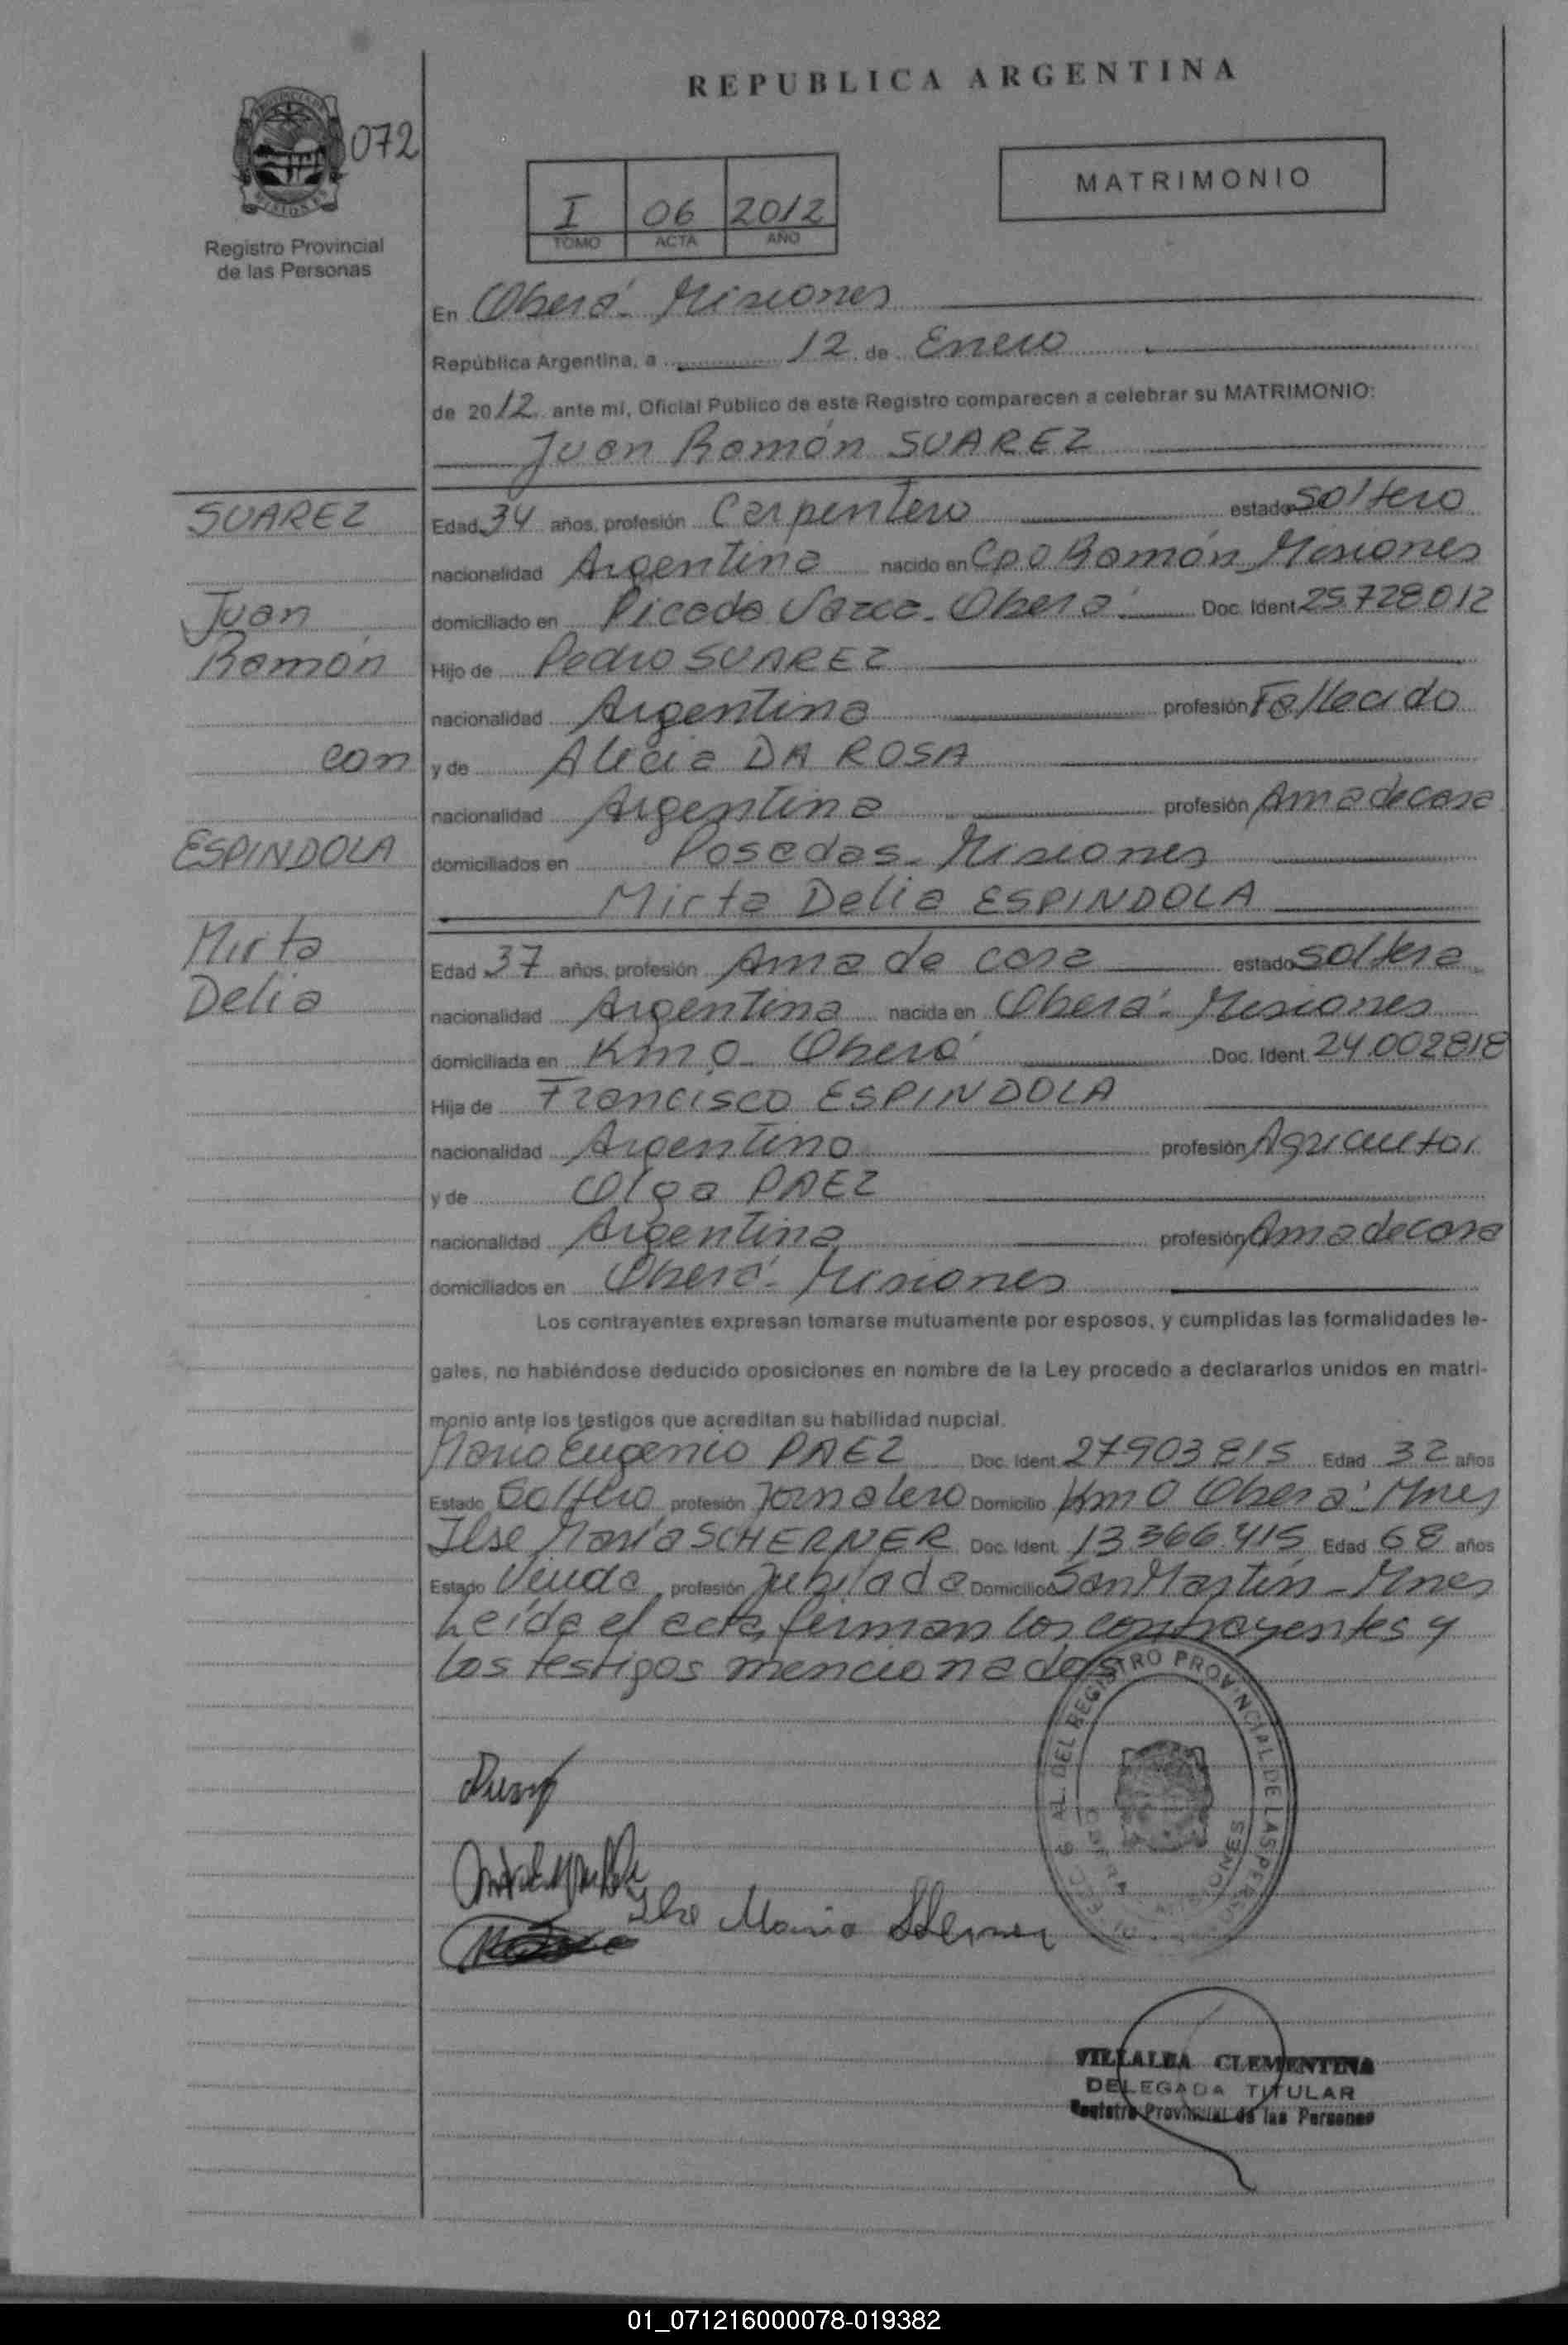 REPUBLICA ARGENTINA
072
MATRIMONIO
I 06 2012
TOMO ACTA AÑO
Registro Provincial
de las Personas
En Oberá - Misiones
República Argentina, a 12 de Enero
de 2012 ante mí, Oficial Público de este Registro comparecen a celebrar su MATRIMONIO:
Juan Ramón SUAREZ
SUAREZ
Juan
Ramón
con
ESPINDOLA
Mirta
Delia
Edad 34 años, profesión Carpintero estado soltero
nacionalidad Argentina nacido en Cpo Ramón Misiones
domiciliado en Picada - Oberá Doc. Ident. 25.728.012
Hijo de Pedro SUAREZ
nacionalidad Argentina profesión Fallecido
y de Alicia DA ROSA
nacionalidad Argentina profesión Ama de casa
domiciliados en Posadas - Misiones
Mirta Delia ESPINDOLA
Edad 37 años, profesión Ama de casa estado soltera
nacionalidad Argentina nacida en Oberá - Misiones
domiciliada en Km 0 - Oberá Doc. Ident. 24.002818
Hija de Francisco ESPINDOLA
nacionalidad Argentino profesión Agricultor
y de Olga PAEZ
nacionalidad Argentina profesión Ama de casa
domiciliados en Oberá - Misiones
Los contrayentes expresan tomarse mutuamente por esposos, y cumplidas las formalidades le-
gales, no habiéndose deducido oposiciones en nombre de la Ley procedo a declararlos unidos en matri-
monio ante los testigos que acreditan su habilidad nupcial.
Mario Eugenio PAEZ Doc. Ident. 27903815 Edad 32 años
Estado Soltero profesión Jornalero Domicilio Km 0 Oberá - Mnes
Ilse María SCHERNER Doc. Ident. 13366.415 Edad 68 años
Estado Viuda profesión Jubilada Domicilio San Martín - Mnes
Leída el acta, firman los contrayentes y
los testigos mencionados
DEL REGISTRO PROVINCIAL DE LAS PERSO
MISIONES
Ilse Maria Scherner
VILLALBA CLEMENTINA
DELEGADA TITULAR
Registro Provincial de las Personas
01_071216000078-019382